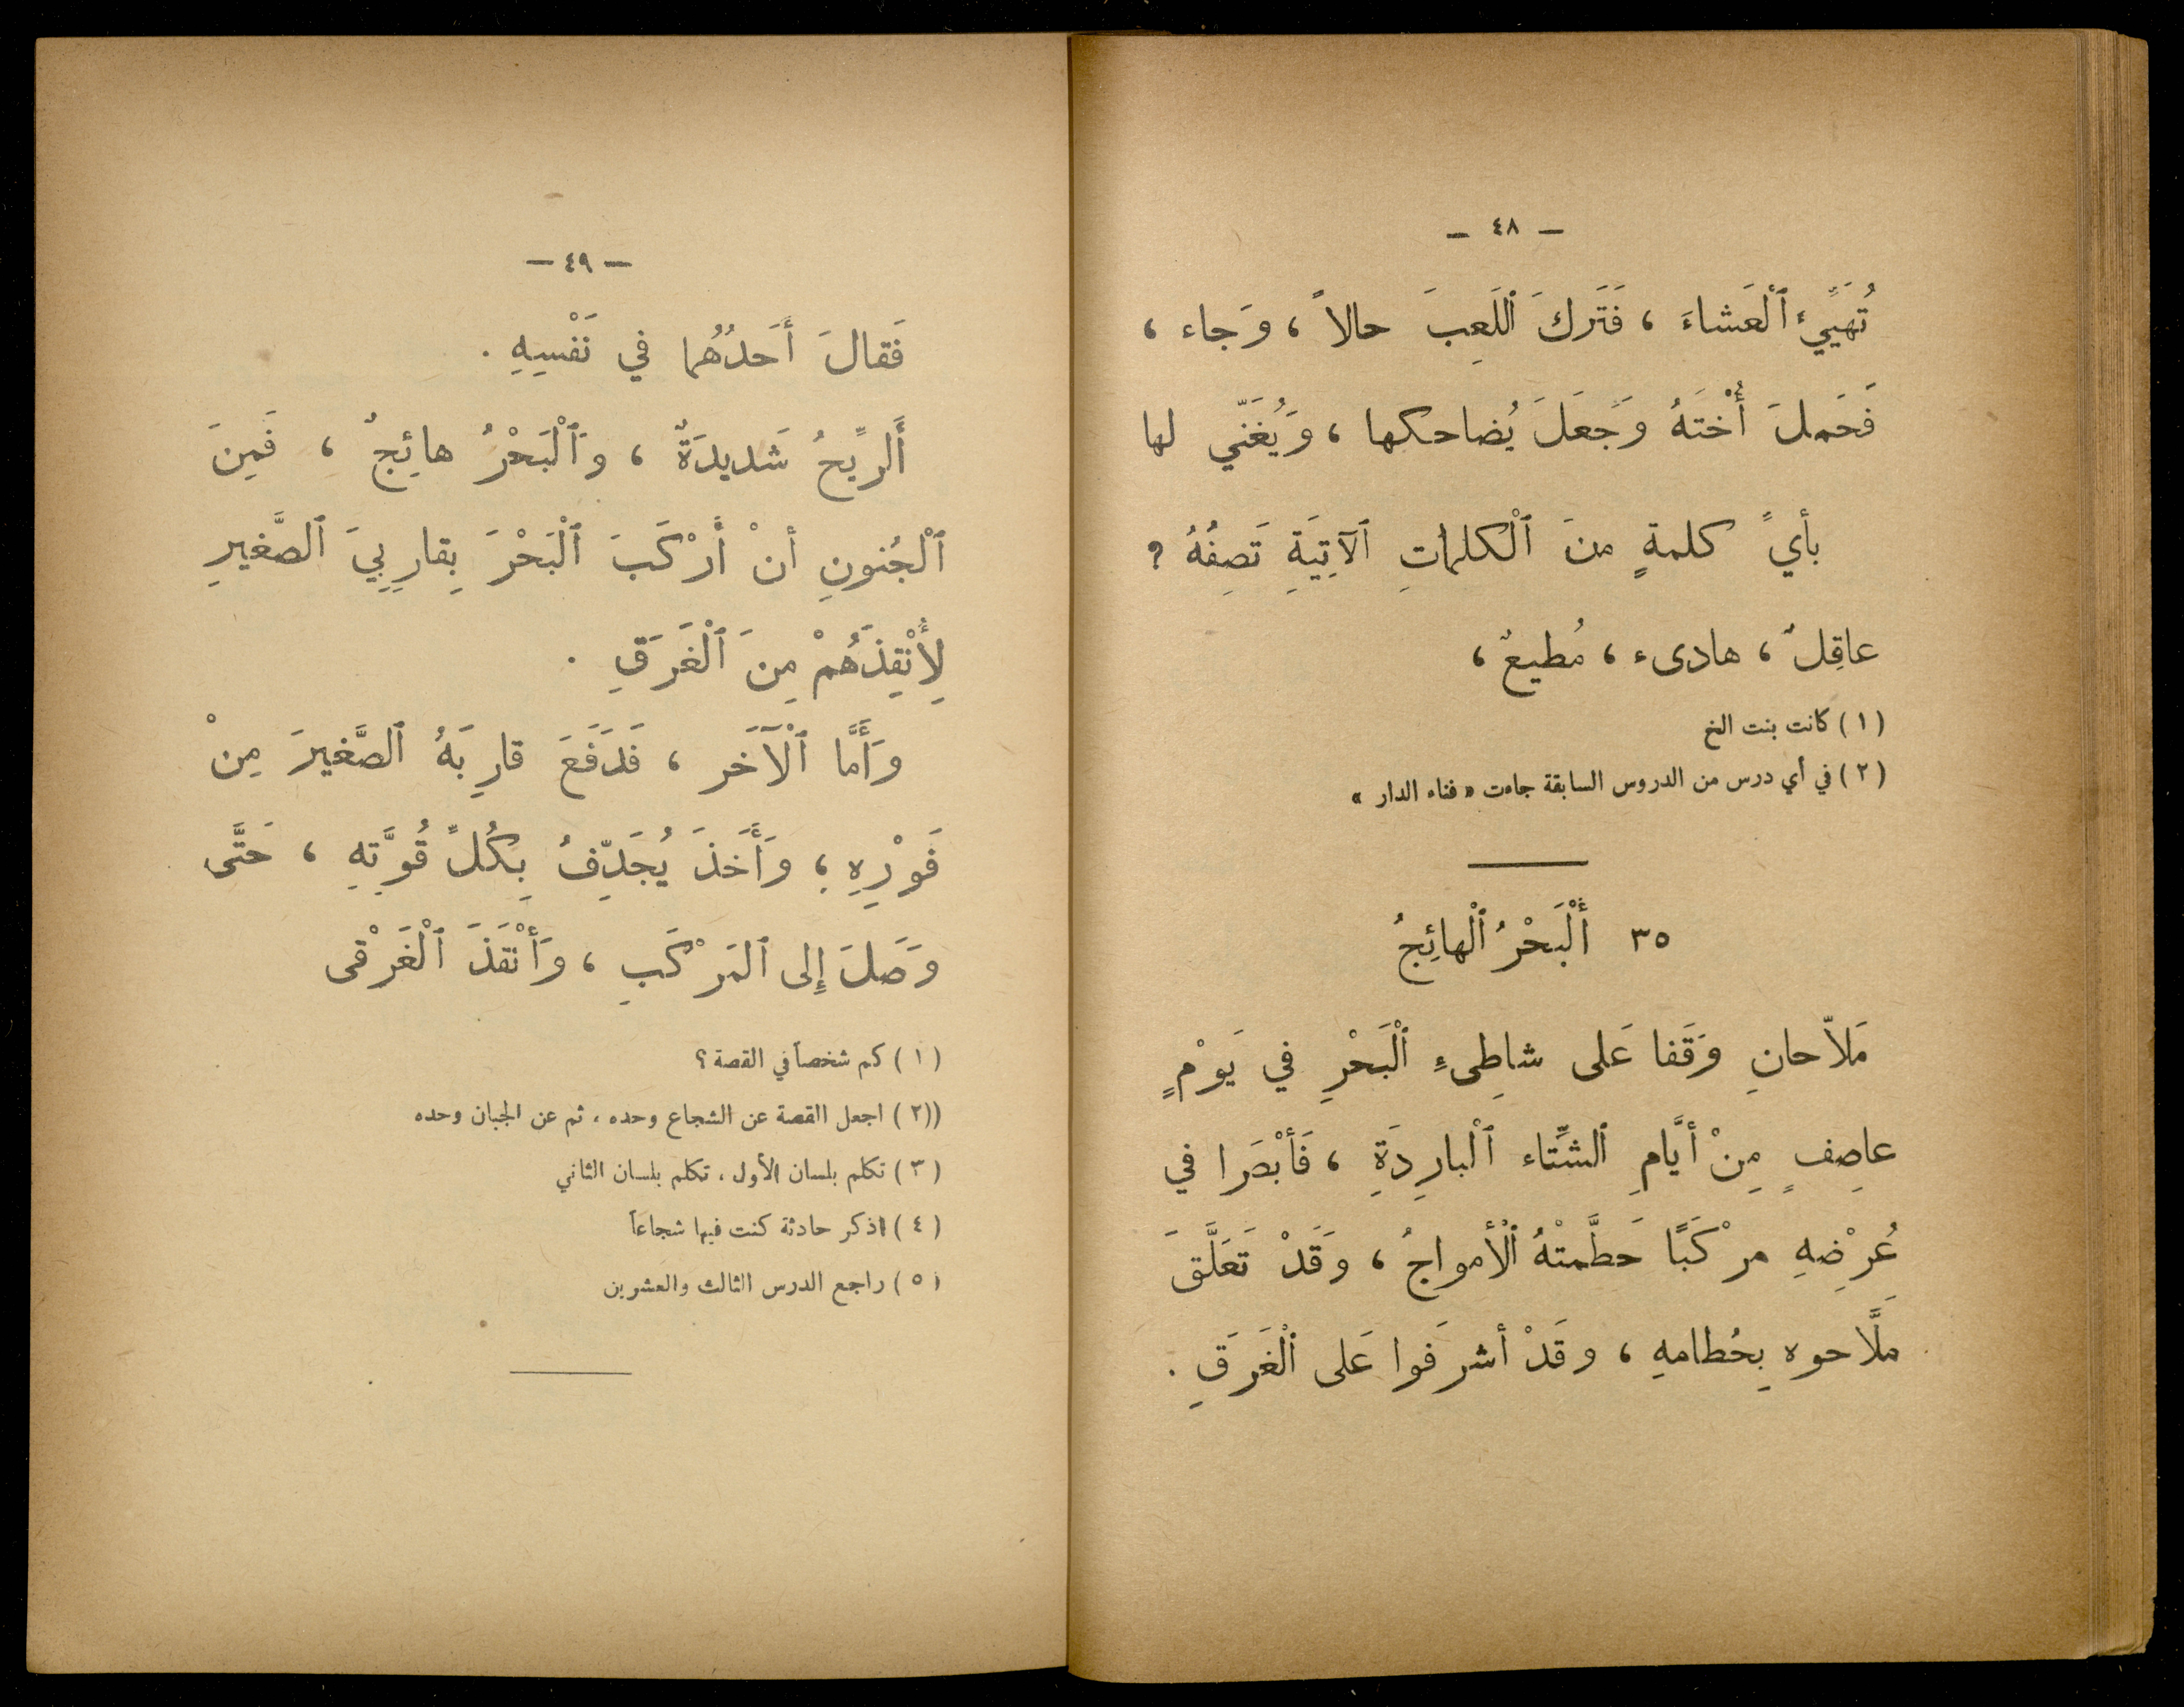 — ٤٨ —
تُهَيِّئُ ٱلْعَشاءَ ، فَتَركَ ٱللَعِبَ حالاً ، وَجاء ،
فَحَملَ أُخْتَهُ وَجَعَلَ يُضاحكها ، وَيُغَنّي لها
بأيِّ كلمةٍ منَ ٱلْكلماتِ ٱلآتِيَةِ تَصِفُهُ ؟
عاقِلٌ ، هادىء ، مُطيعٌ ،
(١) كانت بنت الخ
(٢) في أي درس من الدروس السابقة جاءت « فناء الدار »
٣٥ أَلْبَحْرُ ٱلْهائِجُ
مَلاّحانِ وَقَفا عَلى شاطِىءِ ٱلْبَحْرِ في يَوْمٍ
عاصِفٍ مِنْ أيَّامِ ٱلشِّتاء ٱلْبارِدَةِ ، فَأبْصَرا في
عُرْضِهِ مرْكَبًا حَطَّمتْهُ ٱلْأمواجُ ، وَقَدْ تَعَلَّقَ
مَلَّاحوه بِحُطامهِ ، وقَدْ أشرَفوا عَلى ٱلْغَرَقِ .
— ٤٩ —
فَقالَ أَحَدُهُما في نَفْسِهِ .
أَلرِّيحُ شَديدَةٌ ، وَٱلْبَحْرُ هائِجٌ ، فَمِنَ
ٱلْجُنونِ أنْ أَرْكَبَ ٱلْبَحْرَ بِقارِبِيَ ٱلصَّغيرِ
لِأُنْقِذَهُمْ مِنَ ٱلْغَرَقِ .
وَأَمَّا ٱلْآخَر ، فَدَفَعَ قارِبَهُ ٱلصَّغيرَ مِنْ
فَوْرِهِ ؛ وَأَخَذَ يُجَدِّفُ بِكُلِّ قُوَّتِهِ ، حَتَّى
وَصَلَ إِلى ٱلمَرْكَبِ ، وَأَنْقَذَ ٱلْغَرْقى
(١) كم شخصاً في القصة ؟
((٢) اجعل القصة عن الشجاع وحده ، ثم عن الجبان وحده
(٣) تكلم بلسان الأول ، تكلم بلسان الثاني
(٤) اذكر حادثة كنت فيها شجاعاً
(٥) راجع الدرس الثالث والعشرين